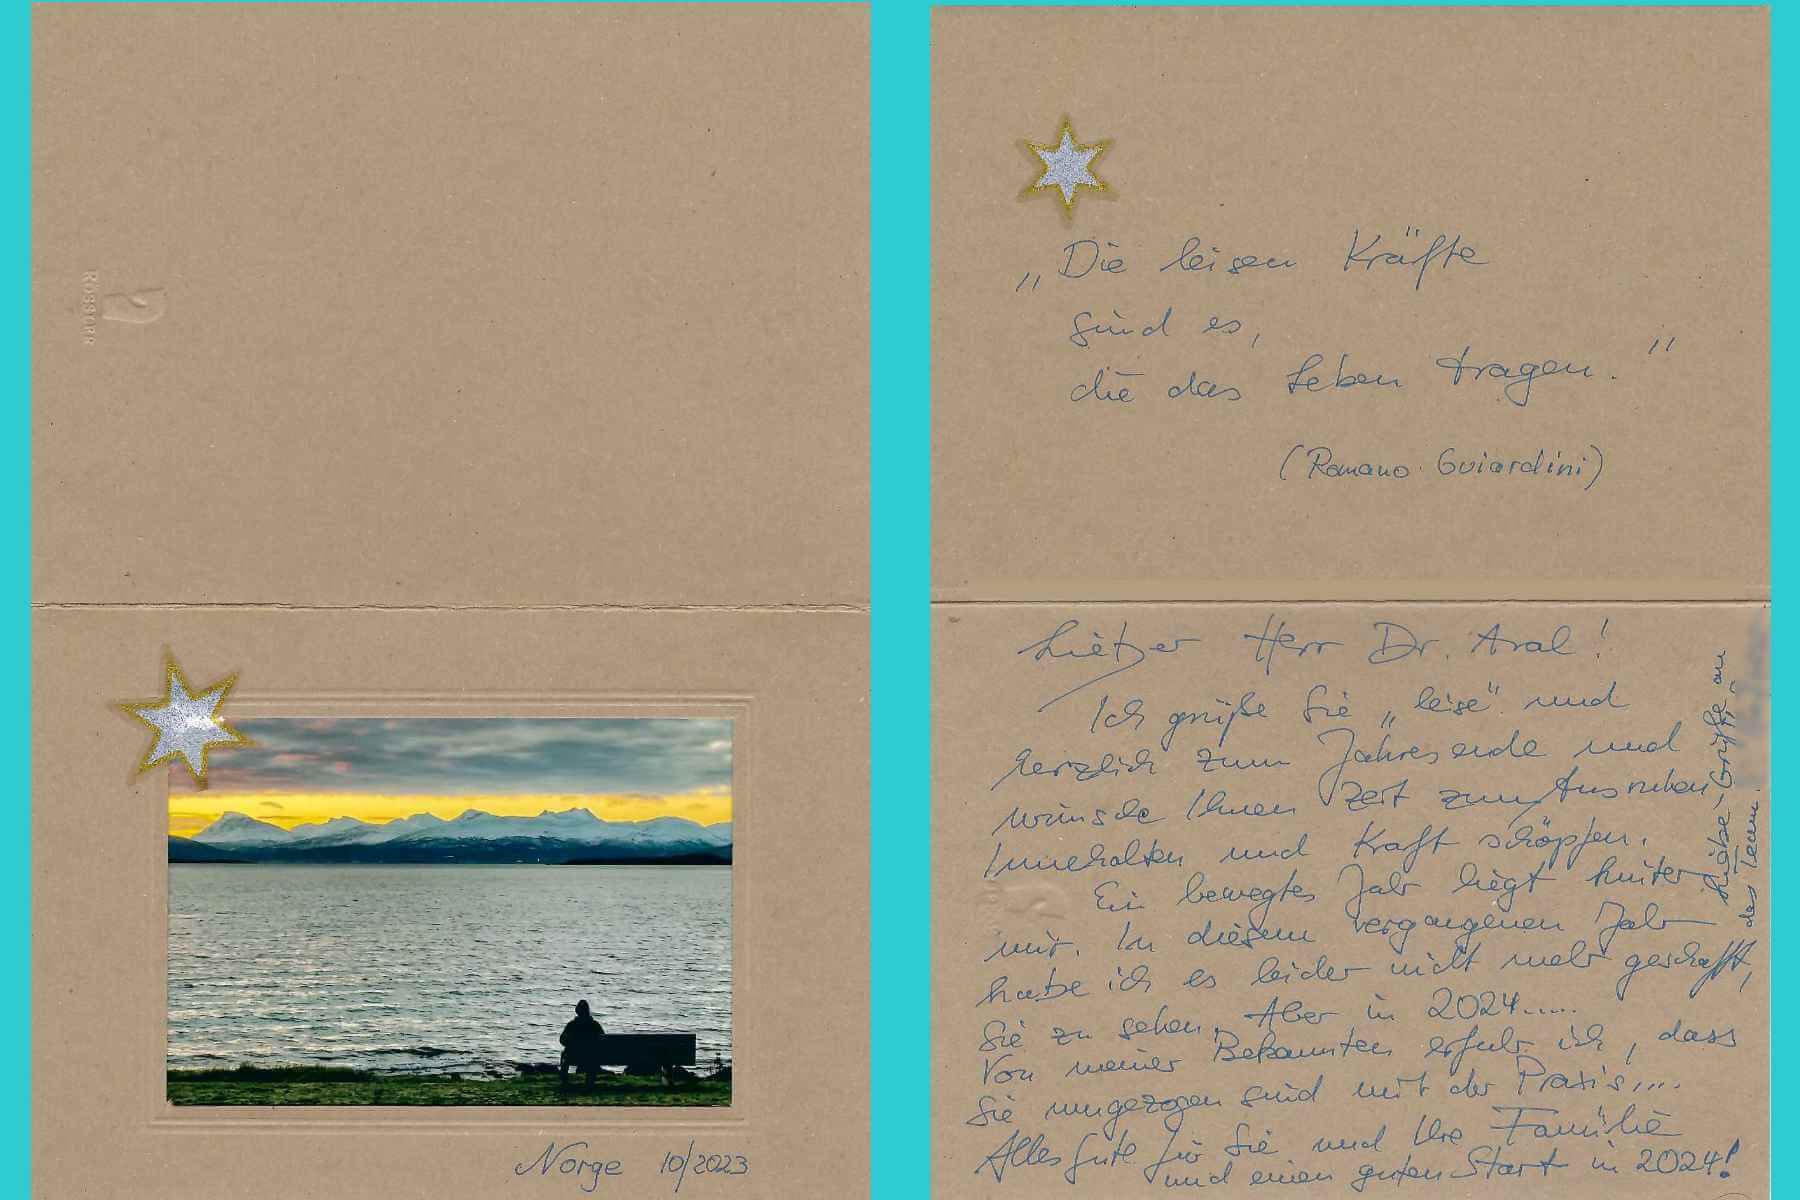 ROSSORR
Norge 10/2023
„Die leisen Kräfte
sind es,
die das Leben tragen."
(Romano Guiardini)
Lieber Herr Dr. Aral!
Ich grüße Sie „leise" und
herzlich zum Jahresende und
wünsche Ihnen Zeit zum Ausruhen,
Innehalten und Kraft schöpfen.
Ein bewegtes Jahr liegt hinter
mir. In diesem vergangenen Jahr
habe ich es leider nicht mehr geschafft,
Sie zu sehen. Aber in 2024.....
Von meiner Bekannten erfuhr ich, dass
Sie umgezogen sind mit der Praxis....
Alles Gute für Sie und Ihre Familie
und einen guten Start in 2024!
Liebe Grüße an
das Team.